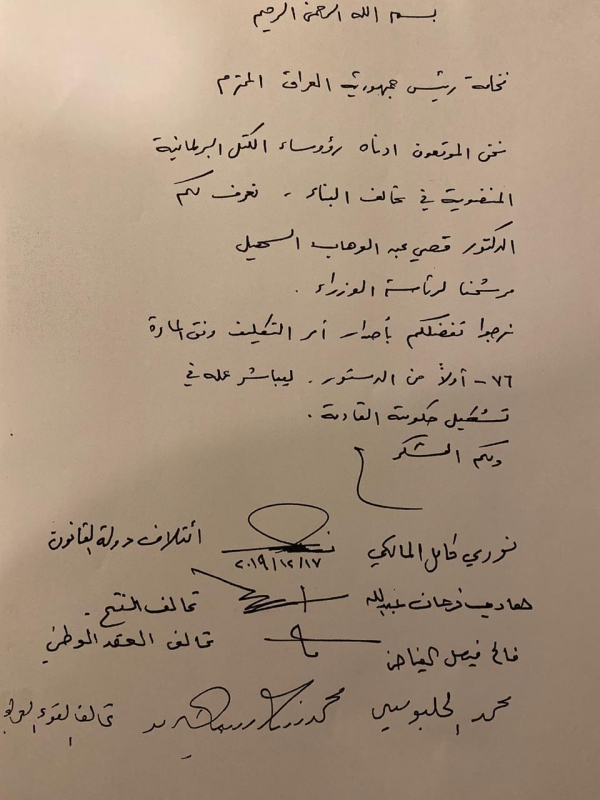 بسم الله الرحمن الرحيم
فخامة رئيس جمهورية العراق المحترم
نحن الموقعون ادناه رؤوساء الكتل البرلمانية
المنضوية في تحالف البناء . نعرف لكم
الدكتور قصي عبد الوهاب السهيل
مرشحنا لرئاسة الوزراء .
نرجوا تفضلكم بأصدار أمر التكليف وفق المادة
٧٦ - أولاً من الدستور . ليباشر عمله في
تشكيل حكومته القادمة .
ولكم الشكر
نوري كامل المالكي ٢٠١٩/١٢/١٧ أئتلاف دولة القانون
هادي فرحان عبدالله تحالف الفتح .
فالح فيصل الفياض تحالف العقد الوطني
محمد الحلبوسي تحالف القوى